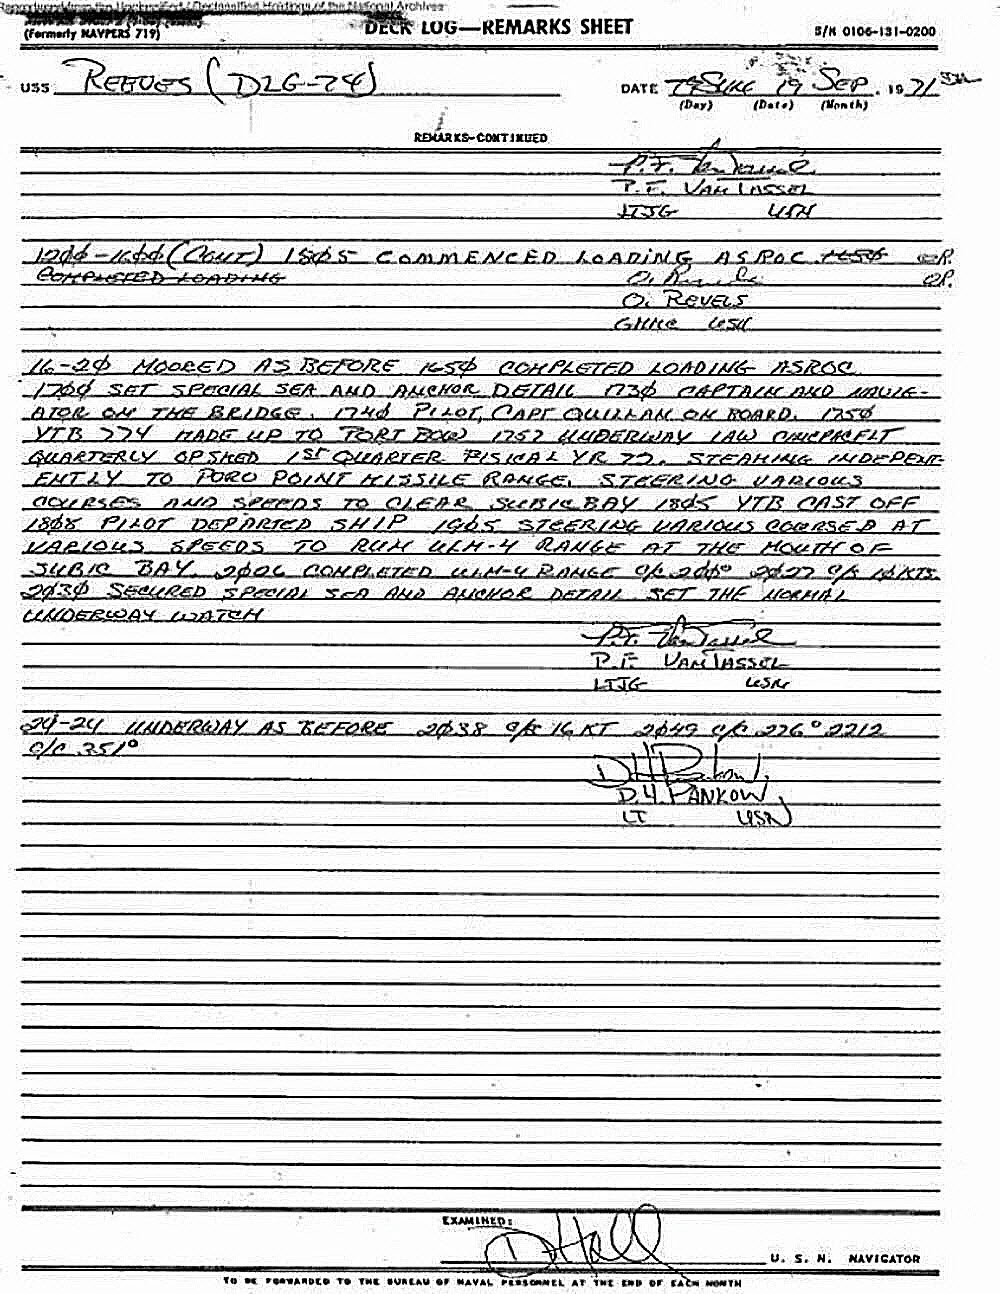 Reproduced from the Unclassified / Declassified Holdings of the National Archives
DECK LOG—REMARKS SHEET
(Formerly NAVPERS 719)
S/N 0106-131-0200
USS REEVES (DLG-24)
DATE SUN 19 SEP. 1971
(Day) (Date) (Month)
REMARKS-CONTINUED
P.F. VanTassel
P.F. VANTASSEL
LTJG USN
12ØØ-16ØØ (CONT) 15Ø5 COMMENCED LOADING ASROC 165Ø OR.
COMPLETED LOADING OR.
O. Revels
O. REVELS
GMMC USN
16-2Ø MOORED AS BEFORE 165Ø COMPLETED LOADING ASROC
17ØØ SET SPECIAL SEA AND ANCHOR DETAIL 173Ø CAPTAIN AND NAVIG-
ATOR ON THE BRIDGE. 174Ø PILOT, CAPT QUILLAN ON BOARD. 175Ø
YTB 774 MADE UP TO PORT BOW 1757 UNDERWAY IAW CINCPACFLT
QUARTERLY OPSKED 1ST QUARTER FISICAL YR 72. STEAMING INDEPENT-
ENTLY TO PORO POINT MISSILE RANGE. STEERING VARIOUS
COURSES AND SPEEDS TO CLEAR SUBIC BAY 18Ø5 YTB CAST OFF
18Ø8 PILOT DEPARTED SHIP 19Ø5 STEERING VARIOUS COURSED AT
VARIOUS SPEEDS TO RUN ULM-4 RANGE AT THE MOUTH OF
SUBIC BAY. 2Ø26 COMPLETED ULM-4 RANGE C/C 2ØØ° 2Ø27 C/S 1ØKTS.
2Ø3Ø SECURED SPECIAL SEA AND ANCHOR DETAIL SET THE NORMAL
UNDERWAY WATCH
P.F. VanTassel
P.F. VANTASSEL
LTJG USN
2Ø-24 UNDERWAY AS BEFORE 2Ø38 C/S 16 KT 2Ø49 C/C 276° 2212
C/C 351°
DH Pankow
D.H. PANKOW
LT USN
EXAMINED:
D Hall
U. S. N. NAVIGATOR
TO BE FORWARDED TO THE BUREAU OF NAVAL PERSONNEL AT THE END OF EACH MONTH